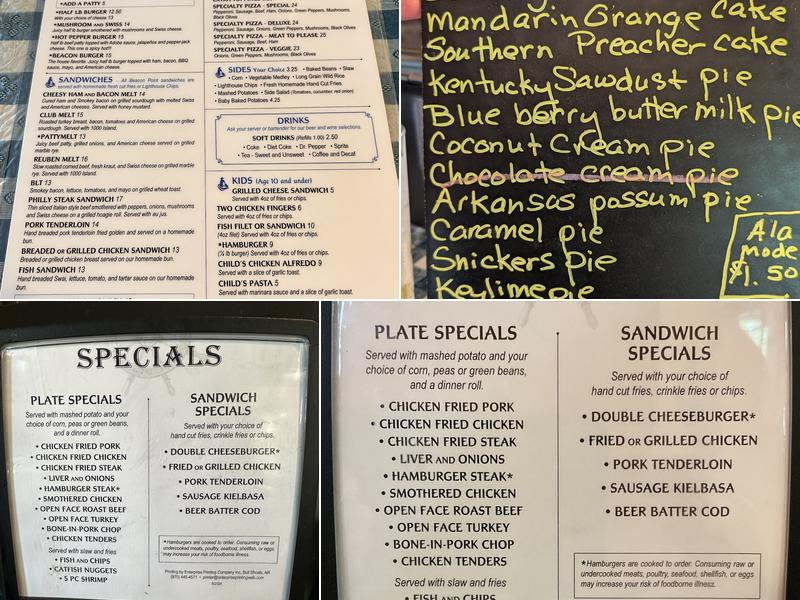 •ADD A PATTY 5
•HALF LB BURGER 12.50
With your choice of cheese 13
•MUSHROOM AND SWISS 14
Juicy half lb burger smothered with mushrooms and Swiss cheese.
•HOT PEPPER BURGER 15
Half lb beef patty topped with Adobe sauce, jalapeños and pepper-jack
cheese. This one is spicy hot!!
•BEACON BURGER 15
The house favorite. Juicy half lb burger topped with ham, bacon, BBQ
sauce, mayo, and American cheese.
SANDWICHES - All Beacon Point sandwiches are
served with homemade fresh cut fries or Lighthouse Chips.
CHEESY HAM AND BACON MELT 14
Cured ham and Smokey bacon on grilled sourdough with melted Swiss
and American cheese. Served with honey mustard.
CLUB MELT 15
Roasted turkey breast, bacon, tomatoes and American cheese on grilled
sourdough. Served with 1000 Island.
*PATTYMELT 13
Juicy beef patty, grilled onions, and American cheese served on grilled
marble rye.
REUBEN MELT 16
Slow roasted corned beef, fresh kraut, and Swiss cheese on grilled marble
rye. Served with 1000 Island.
BLT 13
Smokey bacon, lettuce, tomatoes, and mayo on grilled wheat toast.
PHILLY STEAK SANDWICH 17
Thin sliced Italian style beef smothered with peppers, onions, mushrooms
and Swiss cheese on a grilled hoagie roll. Served with au jus.
PORK TENDERLOIN 14
Hand breaded pork tenderloin fried golden and served on a homemade
bun.
BREADED OR GRILLED CHICKEN SANDWICH 13
Breaded or grilled chicken breast served on our homemade bun.
FISH SANDWICH 13
Hand breaded Swai, lettuce, tomato, and tartar sauce on our homemade
bun.
SPECIALTY PIZZA - SPECIAL 24
Pepperoni, Sausage, Beef, Ham, Onions, Green Peppers, Mushrooms,
Black Olives
SPECIALTY PIZZA - DELUXE 24
Pepperoni, Sausage, Onions, Green Peppers, Mushrooms, Black Olives
SPECIALTY PIZZA - MEAT TO PLEASE 25
Pepperoni, Sausage, Beef, Ham
SPECIALTY PIZZA - VEGGIE 23
Onions, Green Peppers, Mushrooms, Black Olives
SIDES Your Choice 3.25 • Baked Beans • Slaw
• Corn • Vegetable Medley • Long Grain Wild Rice
• Lighthouse Chips • Fresh Homemade Hand Cut Fries
• Mashed Potatoes • Side Salad (Tomatoes, cucumber, red onion)
• Baby Baked Potatoes 4.25
DRINKS
Ask your server or bartender for our beer and wine selections.
SOFT DRINKS (Refills 1.00) 2.50
• Coke • Diet Coke • Dr. Pepper • Sprite
• Tea - Sweet and Unsweet • Coffee and Decaf
KIDS (Age 10 and under)
GRILLED CHEESE SANDWICH 5
Served with 4oz of fries or chips.
TWO CHICKEN FINGERS 6
Served with 4oz of fries or chips.
FISH FILET OR SANDWICH 10
(4oz filet) Served with 4oz of fries or chips.
*HAMBURGER 9
(¼ lb burger) Served with 4oz of fries or chips.
CHILD'S CHICKEN ALFREDO 9
Served with a slice of garlic toast.
CHILD'S PASTA 5
Served with marinara sauce and a slice of garlic toast.
Mandarin Orange Cake
Southern Preacher cake
Kentucky Sawdust pie
Blueberry butter milk pie
Coconut Cream pie
Chocolate cream pie
Arkansas possum pie
Caramel pie
Snickers pie
Keylime pie
Ala
mode
$1.50
SPECIALS
PLATE SPECIALS
Served with mashed potato and your
choice of corn, peas or green beans,
and a dinner roll.
• CHICKEN FRIED PORK
• CHICKEN FRIED CHICKEN
• CHICKEN FRIED STEAK
• LIVER AND ONIONS
• HAMBURGER STEAK*
• SMOTHERED CHICKEN
• OPEN FACE ROAST BEEF
• OPEN FACE TURKEY
• BONE-IN PORK CHOP
• CHICKEN TENDERS
Served with slaw and fries
• FISH AND CHIPS
• CATFISH NUGGETS
• 5 PC SHRIMP
SANDWICH
SPECIALS
Served with your choice of
hand cut fries, crinkle fries or chips.
• DOUBLE CHEESEBURGER*
• FRIED OR GRILLED CHICKEN
• PORK TENDERLOIN
• SAUSAGE KIELBASA
• BEER BATTER COD
*Hamburgers are cooked to order. Consuming raw or
undercooked meats, poultry, seafood, shellfish, or eggs
may increase your risk of foodborne illness.
Printing by Enterprise Printing Company Inc, Bull Shoals, AR
PLATE SPECIALS
Served with mashed potato and your
choice of corn, peas or green beans,
and a dinner roll.
• CHICKEN FRIED PORK
• CHICKEN FRIED CHICKEN
• CHICKEN FRIED STEAK
• LIVER AND ONIONS
• HAMBURGER STEAK*
• SMOTHERED CHICKEN
• OPEN FACE ROAST BEEF
• OPEN FACE TURKEY
• BONE-IN PORK CHOP
• CHICKEN TENDERS
Served with slaw and fries
• FISH AND CHIPS
SANDWICH
SPECIALS
Served with your choice of
hand cut fries, crinkle fries or chips.
• DOUBLE CHEESEBURGER*
• FRIED OR GRILLED CHICKEN
• PORK TENDERLOIN
• SAUSAGE KIELBASA
• BEER BATTER COD
*Hamburgers are cooked to order. Consuming raw or
undercooked meats, poultry, seafood, shellfish, or eggs
may increase your risk of foodborne illness.